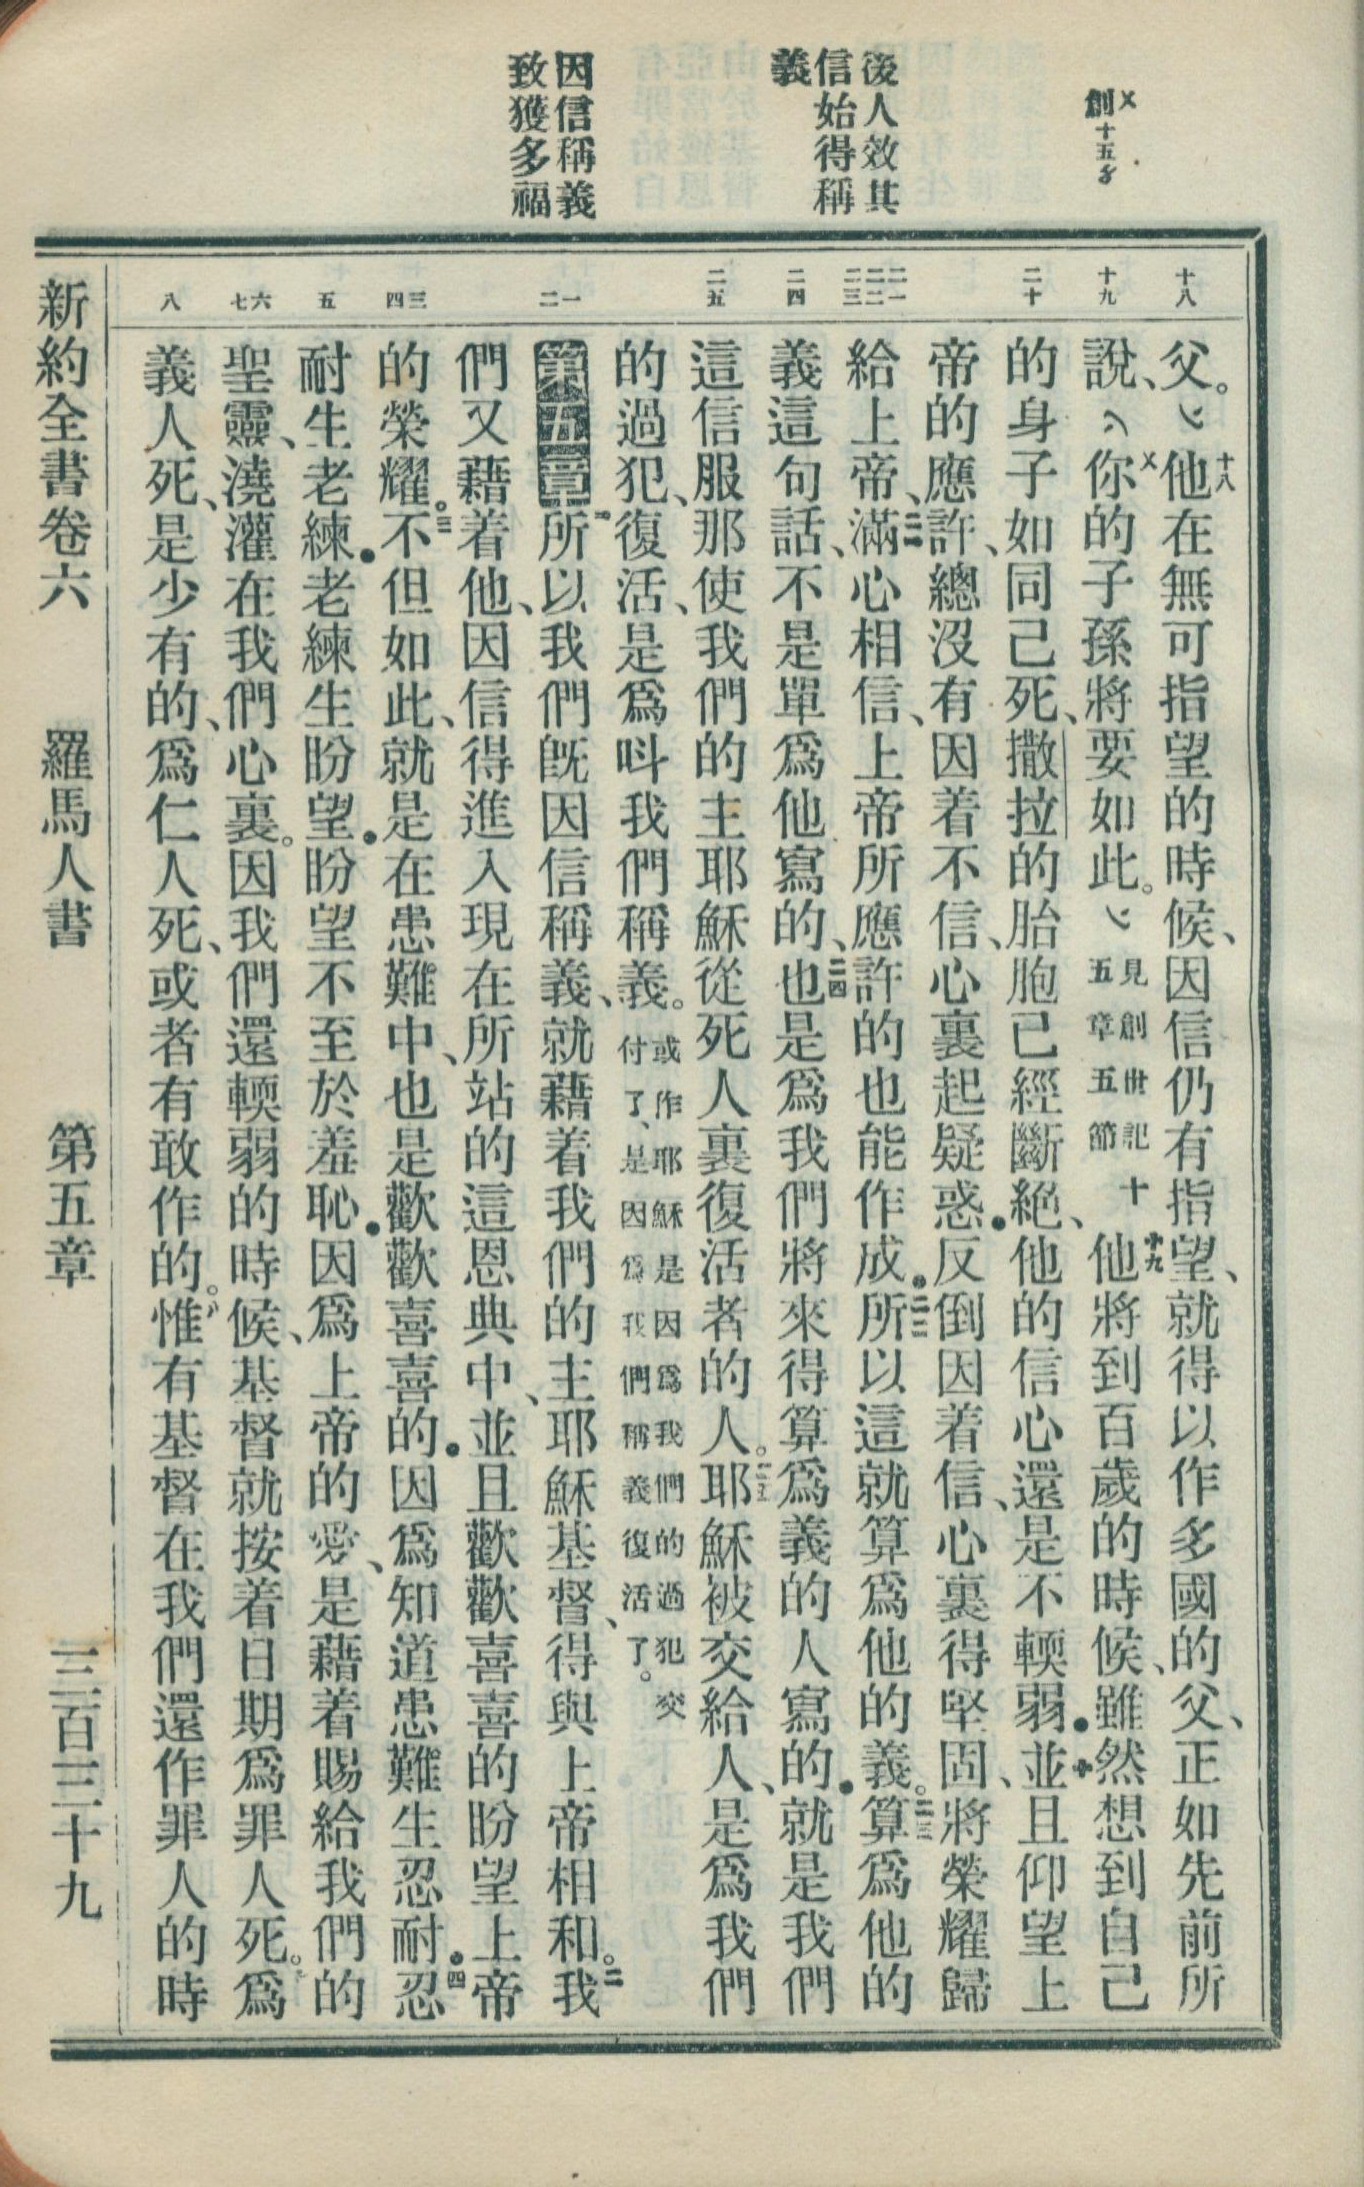 創十五5
後人效其
信始得稱
義
因信稱義
致獲多福
十八
十九
二十
二一
二二
二三
二四
二五
一
二
三
四
五
六
七
八
父。他在無可指望的時候、因信仍有指望、就得以作多國的父、正如先前所
說、你的子孫將要如此。見創世記十五章五節十九他將到百歲的時候、雖然想到自己
的身子如同已死、撒拉的胎胞已經斷絕、他的信心還是不輭弱.二十並且仰望上
帝的應許、總沒有因着不信、心裏起疑惑.反倒因着信、心裏得堅固、將榮耀歸
給上帝、二一滿心相信、上帝所應許的也能作成.二二所以這就算爲他的義。二三算爲他的
義這句話、不是單爲他寫的、二四也是爲我們將來得算爲義的人寫的.就是我們
這信服那使我們的主耶穌從死人裏復活者的人。二五耶穌被交給人、是爲我們
的過犯、復活、是爲呌我們稱義。或作耶穌是因爲我們的過犯交付了、是因爲我們稱義復活了。
第五章一所以我們旣因信稱義、就藉着我們的主耶穌基督、得與上帝相和。二我
們又藉着他、因信得進入現在所站的這恩典中、並且歡歡喜喜的盼望上帝
的榮耀。三不但如此、就是在患難中、也是歡歡喜喜的.因爲知道患難生忍耐.四忍
耐生老練.老練生盼望.盼望不至於羞恥.因爲上帝的愛、是藉着賜給我們的
聖靈、澆灌在我們心裏。因我們還輭弱的時候、基督就按着日期爲罪人死。爲
義人死、是少有的、爲仁人死、或者有敢作的。八惟有基督在我們還作罪人的時
新約全書卷六　羅馬人書　第五章　三百三十九